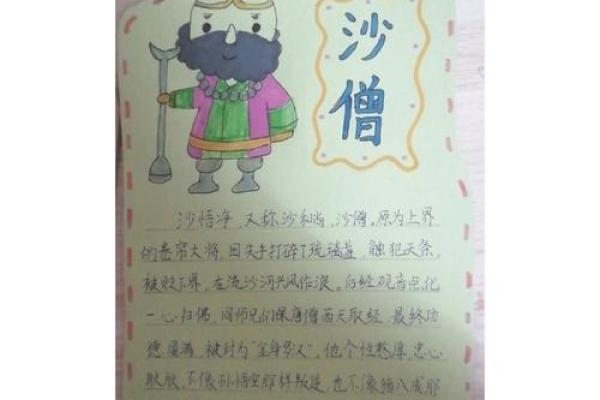 沙僧
沙悟净,又称沙和尚,沙僧。原为上界
的卷帘大将,因失手打碎了琉璃盏,触犯天条,
被贬下界,在流沙河兴风作浪。后经观音点化
一心归佛,同师兄们保唐僧西天取经 最终功
德圆满,被封为"金身罗汉"。他个性憨厚,忠心
耿耿,不像孙悟空那样叛逆,也不像猪八戒那